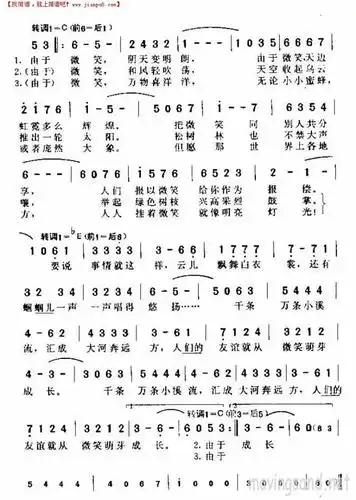 【找简谱,就上简谱吧? www.jianpu8.c
转调1=C(前6=后1)
53 : 6-5- 2432 1--- 1035 6667
1.由于 微笑, 阴天变明朗, 由于 微笑天边
2.(由于) 微笑, 和风轻吹荡, 天空收起乌云
3.(由于) 微笑, 万物喜洋洋, 无论小小蜜蜂,
2176 1-53 5067 1-35 6543
虹霓多么 辉煌。 把微笑同 别人共分
推出一轮 太阳, 松树林也 不禁大声
或者庞然 大象。 但愿那世 界上各地
6--- 6076 1576 5023 4321
享, 人们报以微笑 给你作为 报偿。
嚷, 举起绿色树枝 兴高采烈 鼓掌。
方, 人人挂着微笑 就像明亮 灯光!
转调1=bE(前1=后6)
1061 3332 3-66 1777 7-17
要说 事情就这 样,云儿 飘舞白衣 裳,还有
32 34 3234 6--- 4-63 3333
蝈蝈儿一声 一声唱得 悠扬…… 千条 万条小溪
4-62 4333 3-66 7124 3312
流,汇成 大河奔远 方,人们的 友谊就从 微笑萌芽
4-30 3-63 3333 4-62 4333 3-66
成长。 千条 万条小溪 流,汇成 大河奔远 方,人们的
转调1=C(前3=后5)
7124 3312 6--- 6053 : 3--- 3063
友谊就从 微笑萌芽 成长。 2.由于 成长
3.由于
movingsand.net